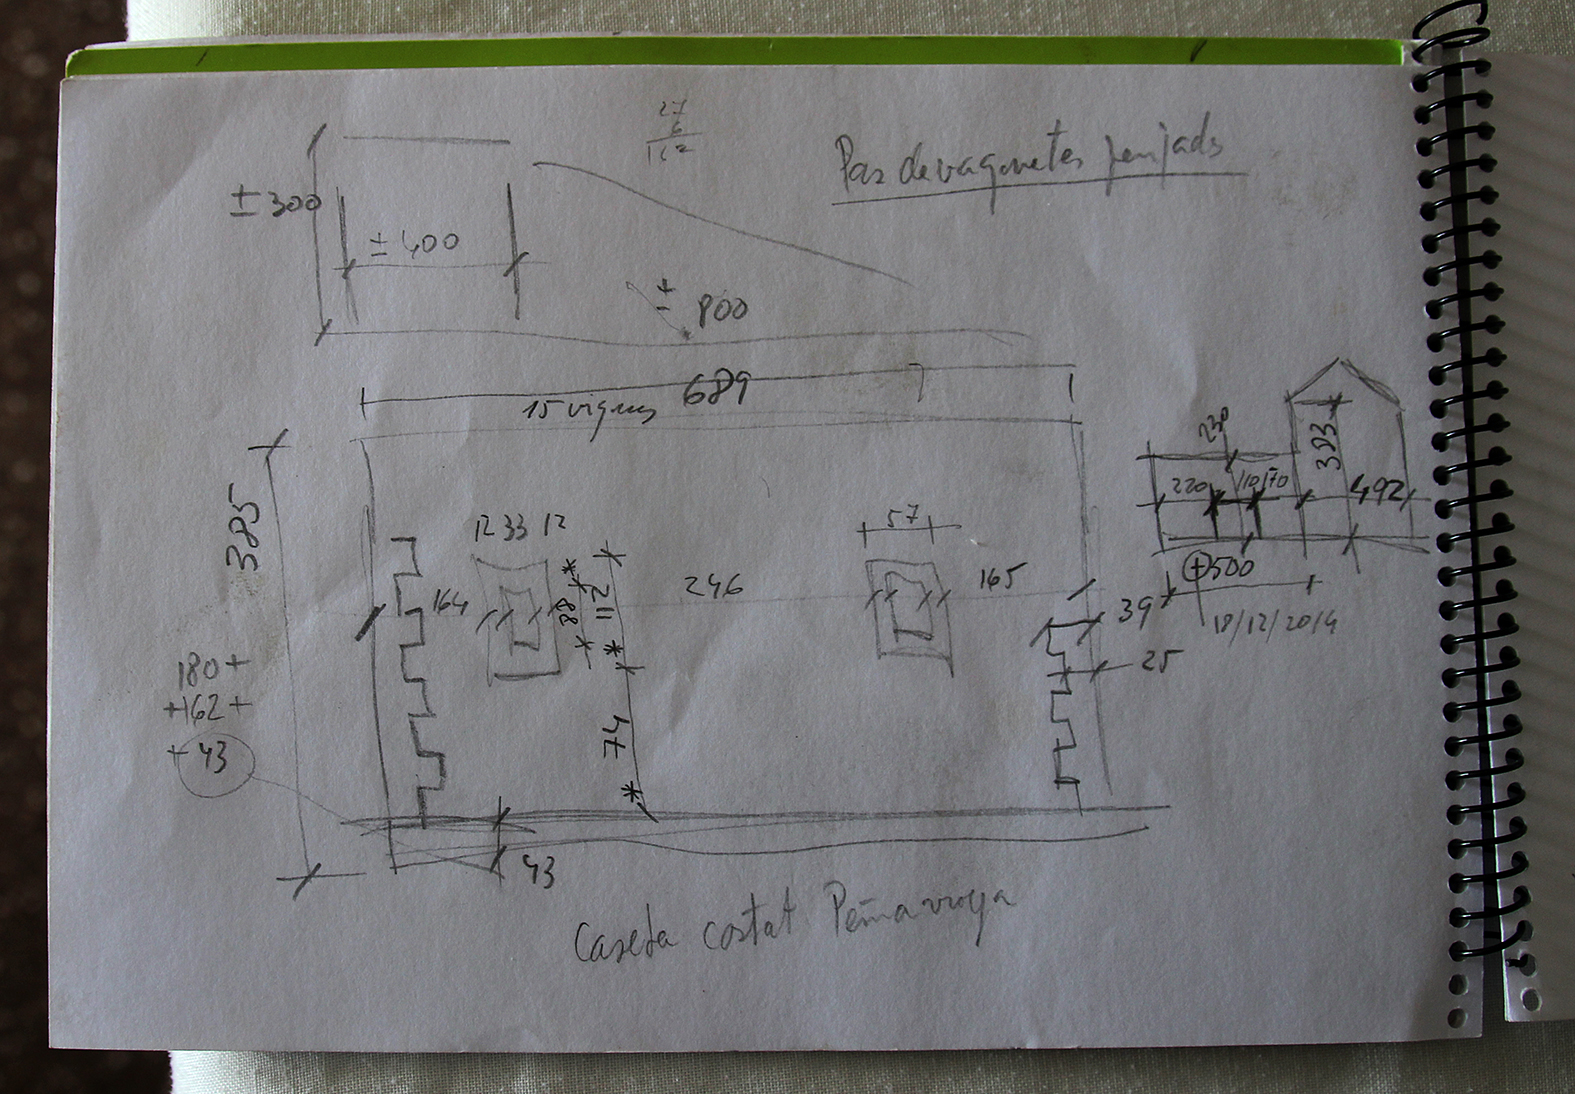 27
6
162
Pas de vagonetes penjads
±300
±400
± 800
689
15 vigues
385
12 33 12
164
88
112
246
57
165
39
25
74
180+
+162+
+43
43
230
220
110/70
383
492
+500
18/12/20/4
Caseta costat Peñarroya